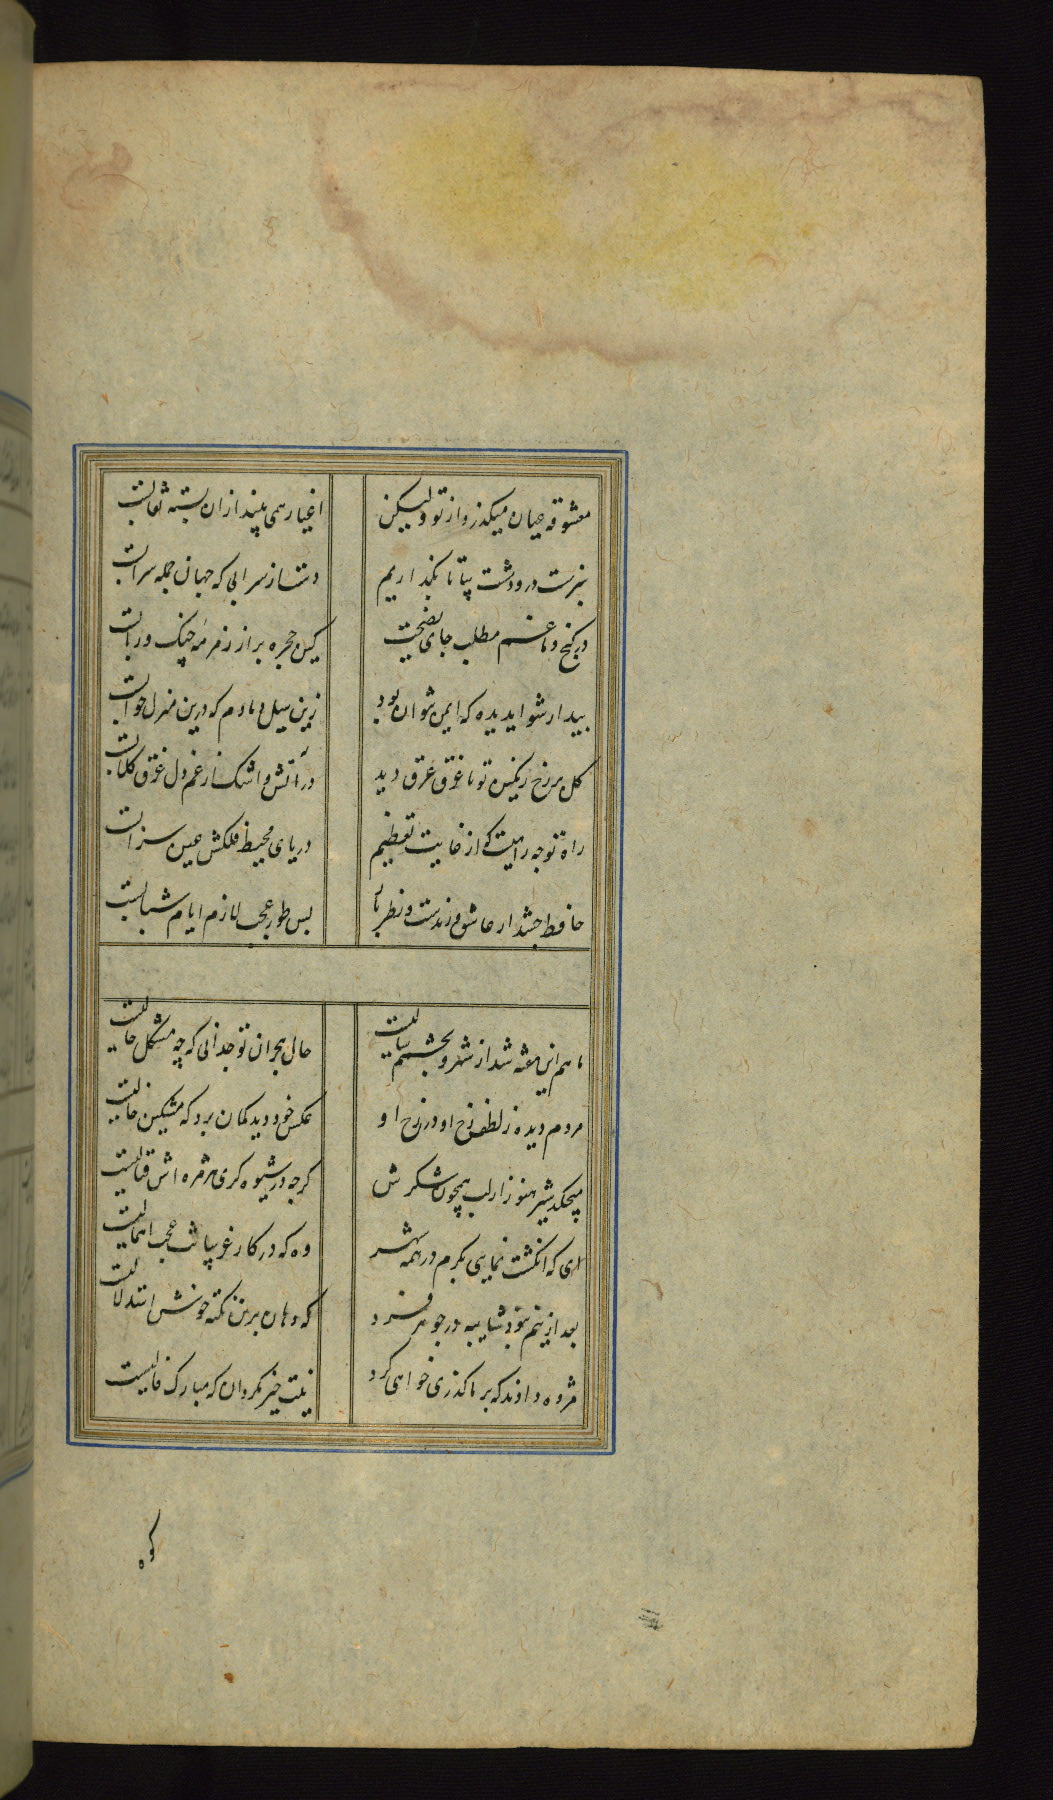 معشوقه عیان میگذرد از تو ولیکن اغیار همی بیند ازان بسته نقابست
سبزست در و دشت بیا تا نگذاریم دست از سرابی که جهان جمله سرابست
در کنج دماغم مطلب جای نصیحت کین حجره پر از زمزمه چنک و ربابست
بیدار شو ای دیده که ایمن نتوان بود زین سیل دمادم که درین منزل خوابست
کل بر رخ رنکین تو تا غرق عرق دید در آتش و اشک از غم دل غرق کلابست
راه تو چه راهیست که از غایت تعظیم دریای محیط فلکش عین سرابست
حافظ چه شد ار عاشق و رندست و نظرباز بس طور عجب لازم ایام شبابست
ماهم این هفته شد از شهر و بچشمم سالیست حال هجران تو چه دانی که چه مشکل حالیست
مردم دیده ز لطف رخ او در رخ او عکس خود دید کمان برد که مشکین خالیست
میچکد شیر هنوز از لب همچون شکرش کرچه در شیوه کری هر مژه اش قتالیست
ای که انکشت نمایی بکرم در همه شهر وه که در کار غریبانت عجب اهمالیست
بعد ازینم نبود شایبه در جوهر فرد که دهان برین نکته خوش استدلالیست
مژده دادند که بر ما کذری خواهی کرد نیت خیر مکردان که مبارک فالیست
کوه